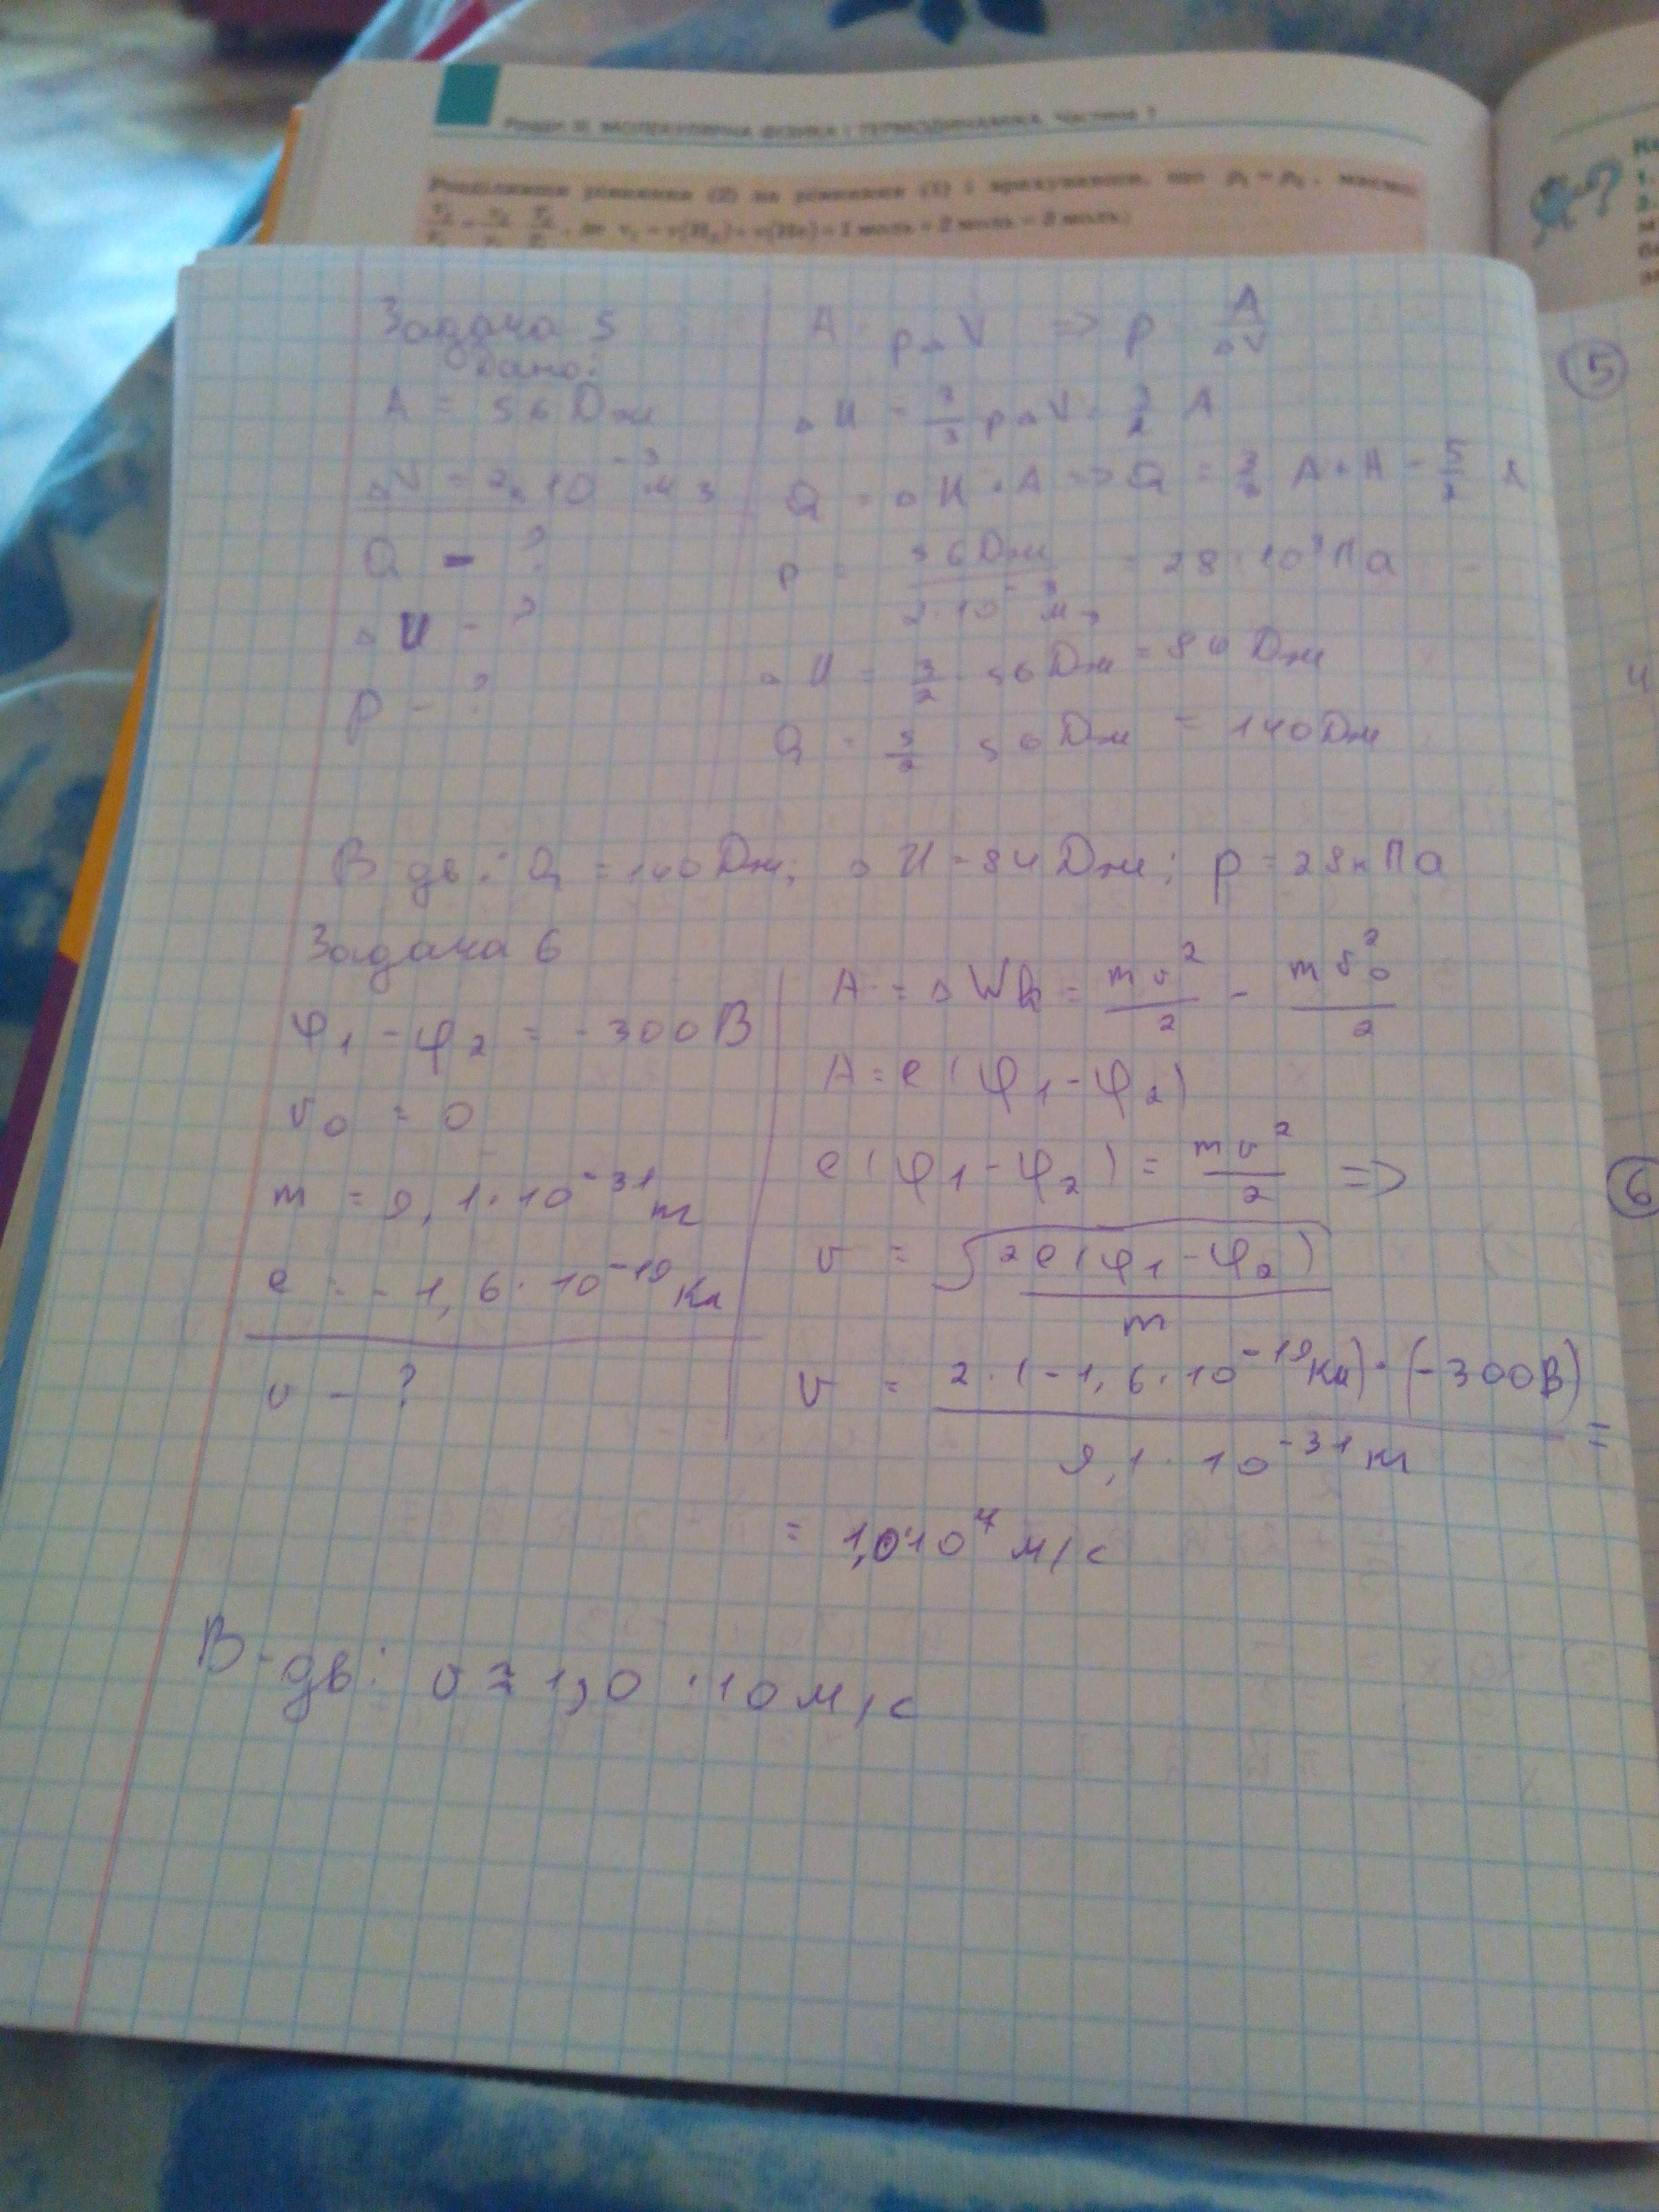 Розділ II. МОЛЕКУЛЯРНА ФІЗИКА І ТЕРМОДИНАМІКА. Частина 1
Розділивши рівняння (2) на рівняння (1) і врахувавши, що p₁ = p₂, маємо:
, де ν₁ = ν(H₂) + ν(He) = 1 моль + 2 моль = 3 моль;
Задача 5
Дано:
A = 56 Дж
ΔV = 2·10⁻³ м3
Q - ?
ΔU - ?
p - ?
A p ΔV => p A/ΔV
ΔU = 3/2 pΔV = 3/2 A
Q = ΔU + A => Q = 3/2 A + A = 5/2 A
p = 56 Дж / 2·10⁻³ м3 = 28·10³ Па
ΔU = 3/2 56 Дж = 84 Дж
Q = 5/2 56 Дж = 140 Дж
В-дв: Q = 140 Дж; ΔU = 84 Дж; p = 28кПа
Задача 6
φ₁ - φ₂ = -300 В
v₀ = 0
m = 9,1·10⁻³¹ кг
e = -1,6·10⁻¹⁹ Кл
v - ?
A = ΔWk = mv²/2 - mv₀²/2
A = e(φ₁-φ₂)
e(φ₁-φ₂) = mv²/2 =>
v = √2e(φ₁-φ₂)/m
v = 2·(-1,6·10⁻¹⁹Кл)·(-300В) / 9,1·10⁻³¹ кг =
= 1,0·10⁷ м/с
В-дв: v ≈ 1,0 ·10 м/с
5
6